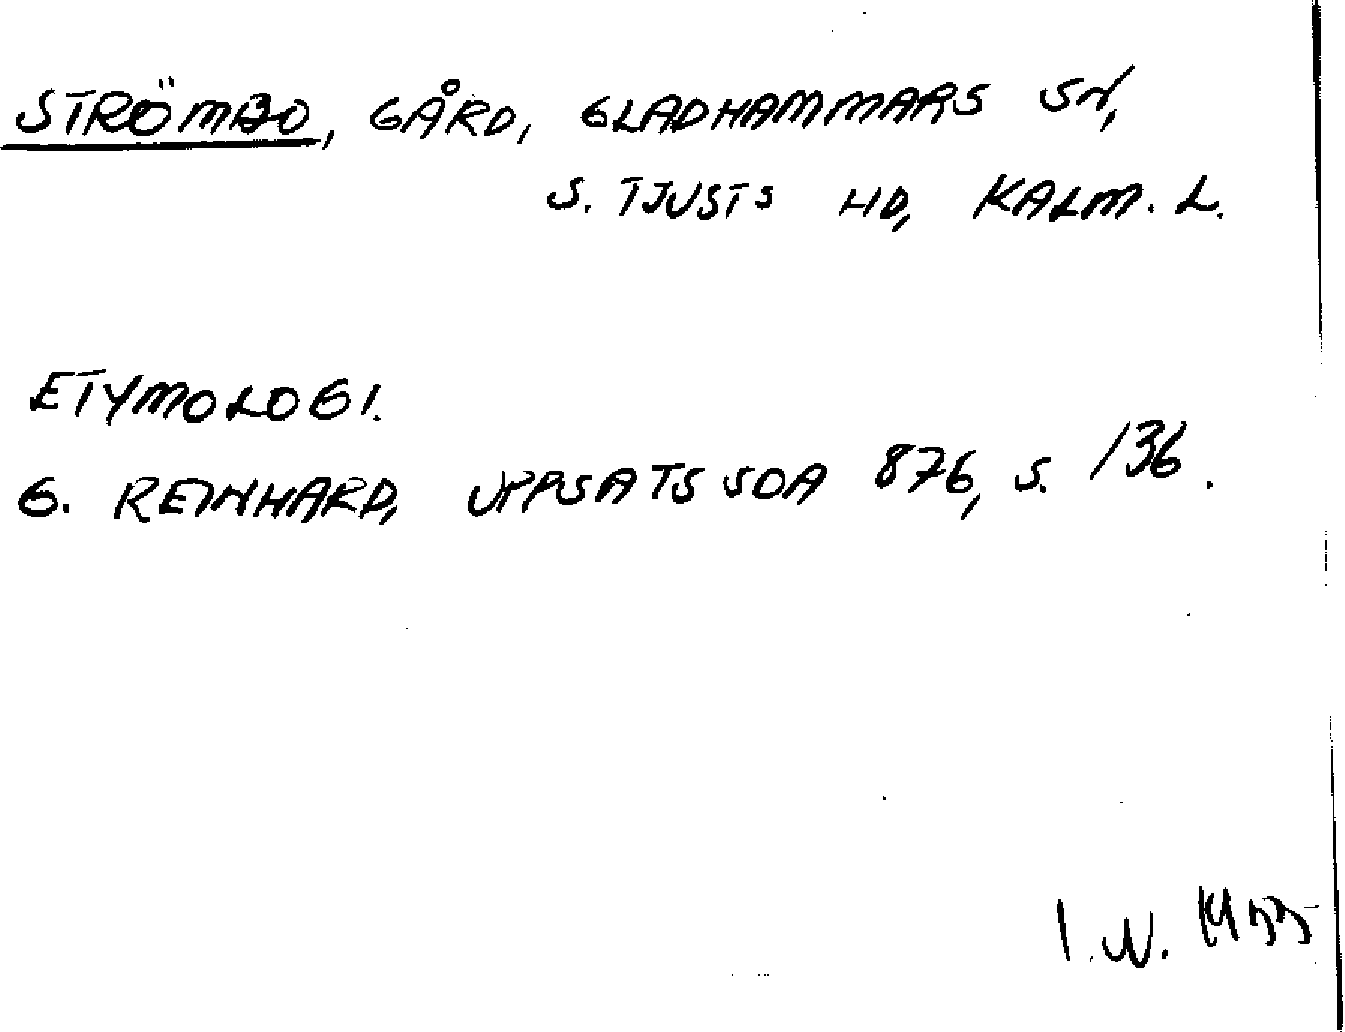 STRÖMBO, GÅRD, GLADHAMMARS SN,
S. TJUSTS HD, KALM. L.
ETYMOLOGI.
G. REINHARD, UPPSATS SOA 876, S. 136.
I.N. 1955